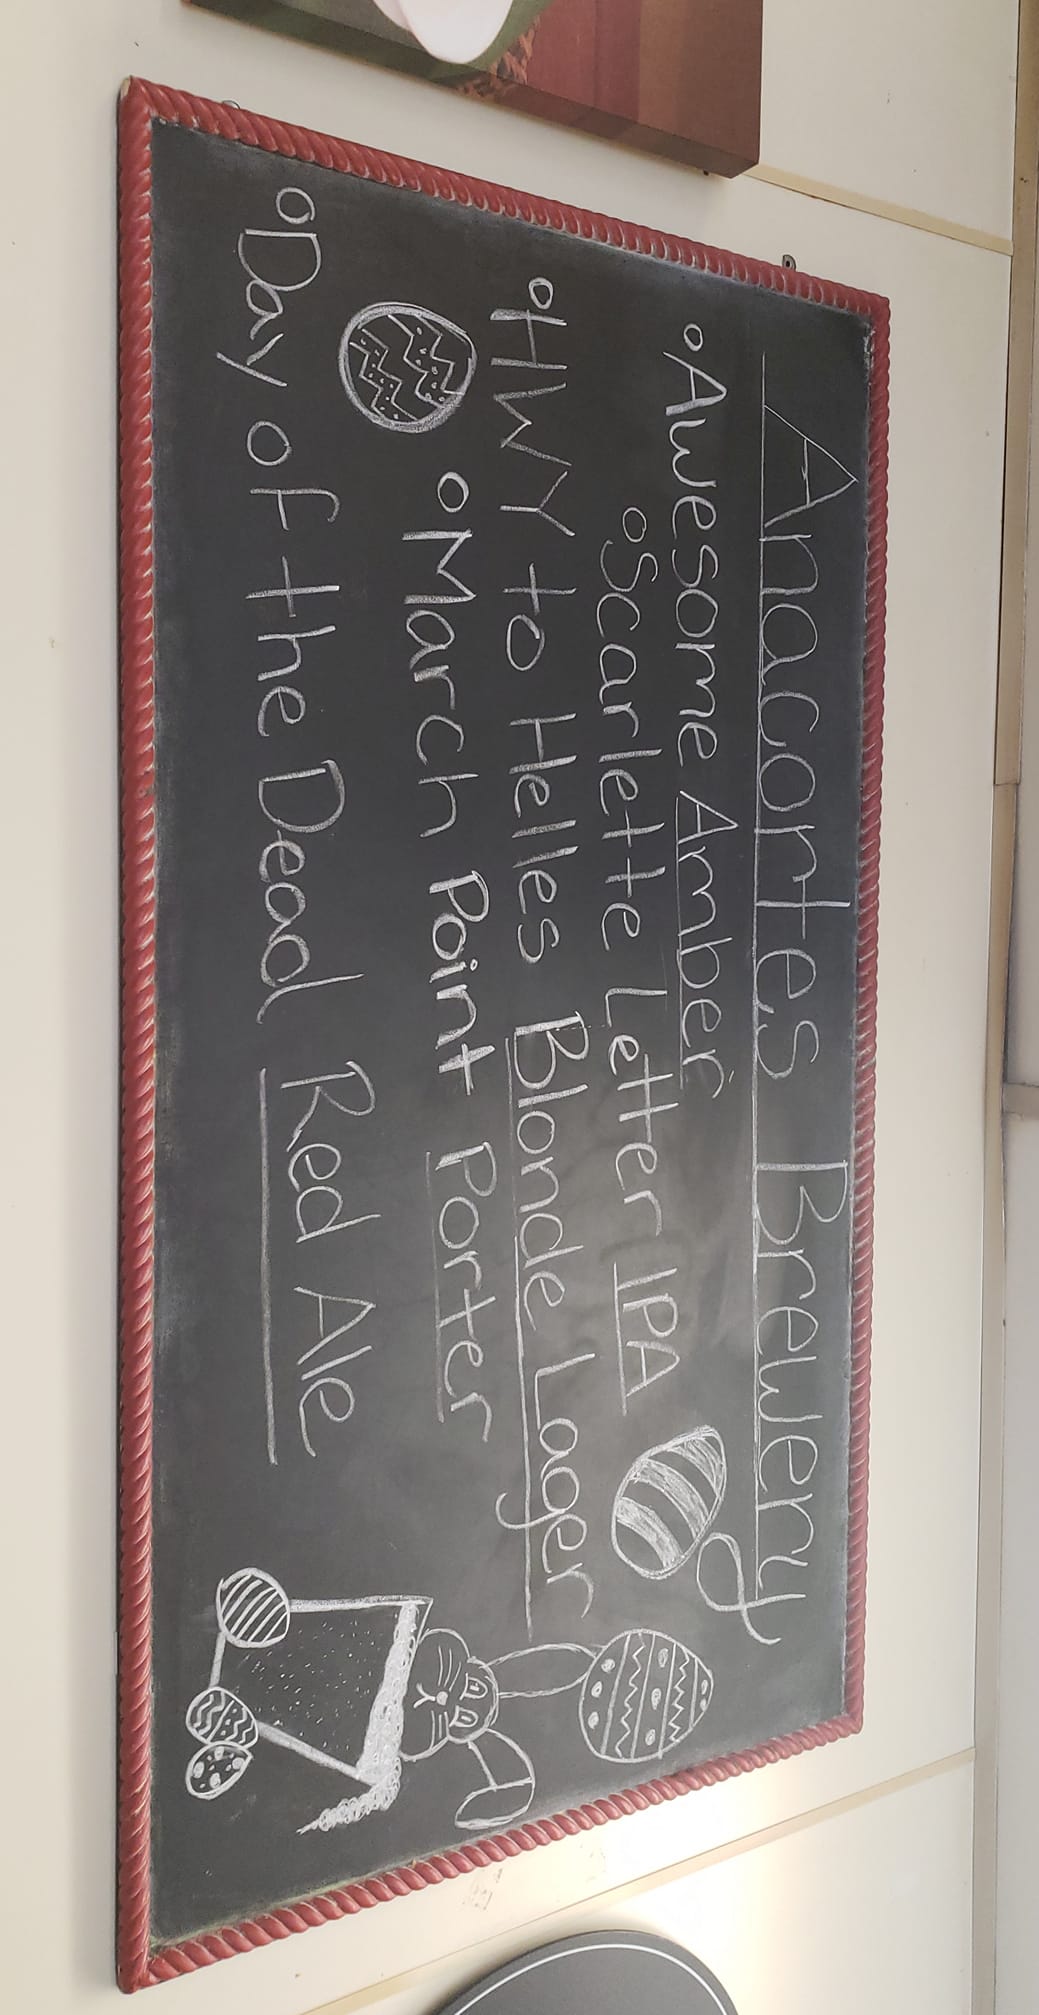 Anacortes Brewery
Awesome Amber
Scarlette Letter IPA
HWY to Helles Blonde Lager
March Point Porter
Day of the Dead Red Ale